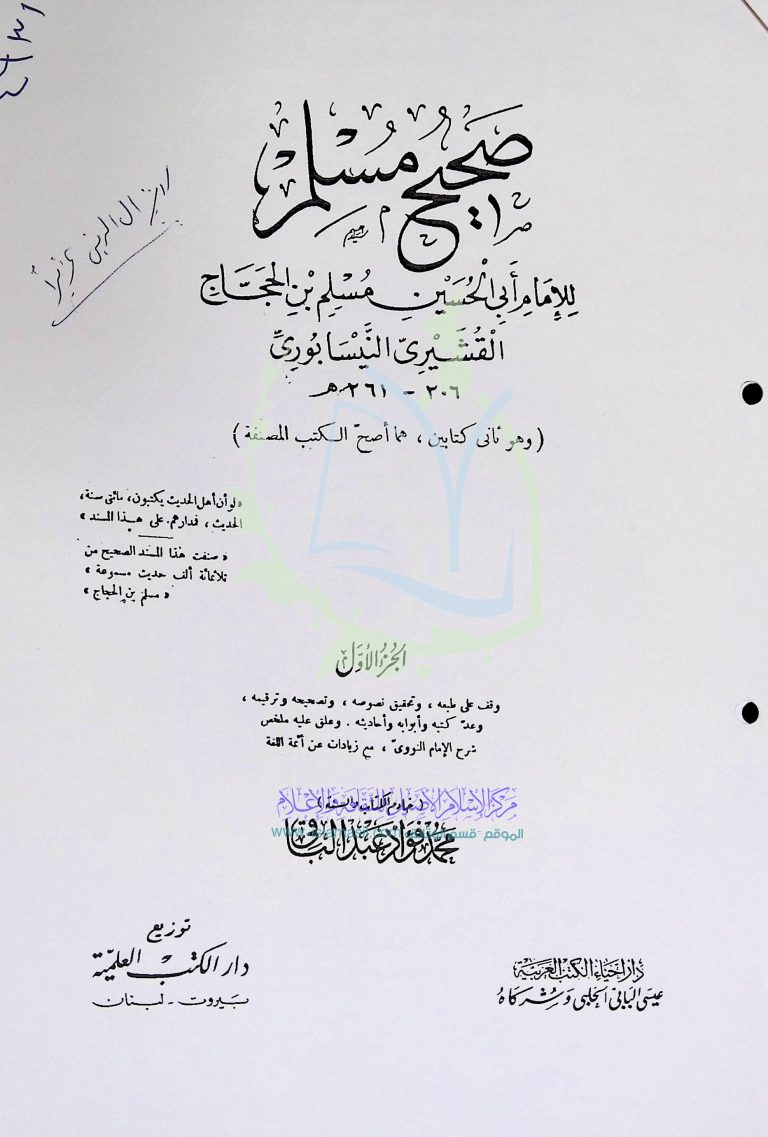 صَحِيحُ مُسْلِم
لِلإِمَامِ أَبِي الْحُسَيْنِ مُسْلِم بْنِ الْحَجَّاجِ
الْقُشَيْرِيّ النَّيْسَابُورِيّ
٢٠٦ - ٢٦١ هـ
( وهو ثانى كتابين ، هما أصحّ الكتب المصنفة )
«لو أن أهل الحديث يكتبون، مائتى سنة،
الحديث ، فدارهم على هذا المسند»
« صنفت هذا المسند الصحيح من
ثلاثمائة ألف حديث مسموعة »
« مسلم بن الحجاج »
الجُزءُ الأوّل
وقف على طبعه ، وتحقيق نصوصه ، وتصحيحه وترقيمه ،
وعدّ كتبه وأبوابه وأحاديثه . وعلق عليه ملخص
شرح الإمام النووىّ ، مع زيادات عن أئمة اللغة
مركز الإسلام الأصيل للثقافة والإعلام
(خادم الكتاب والسنة)
محمد فؤاد عبد الباقى
توزيع
دار الكتب العلميّة
بَيروت - لبنان
دار إحياء الكتب العربية
عيسى البابى الحلبى وشركاهُ